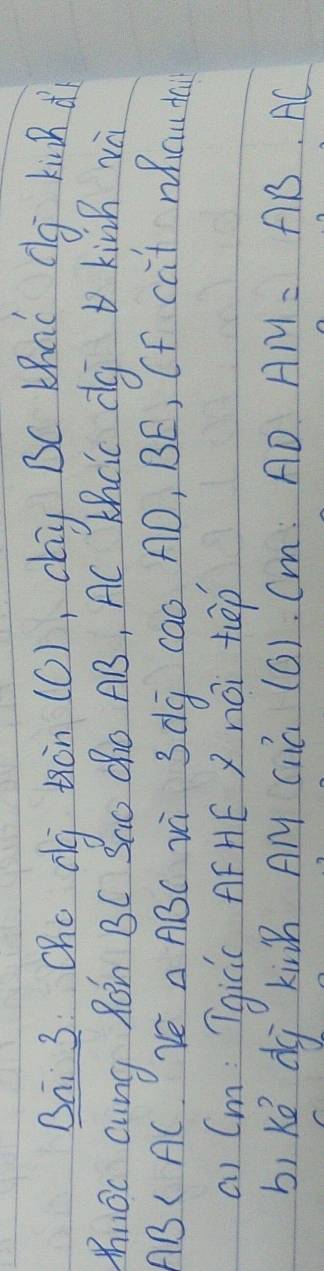 Bài 3: Cho đg tròn (O), dây BC khác đg kính
thuộc cung lớn BC sao cho AB, AC khác đg kính và
AB < AC. Vẽ Δ ABC và 3 đg cao AD, BE, CF cắt nhau
a) Cm: Tgiác AFHE nội tiếp
b) Kẻ đg kính AM của (O). Cm: AD. AM = AB. AC